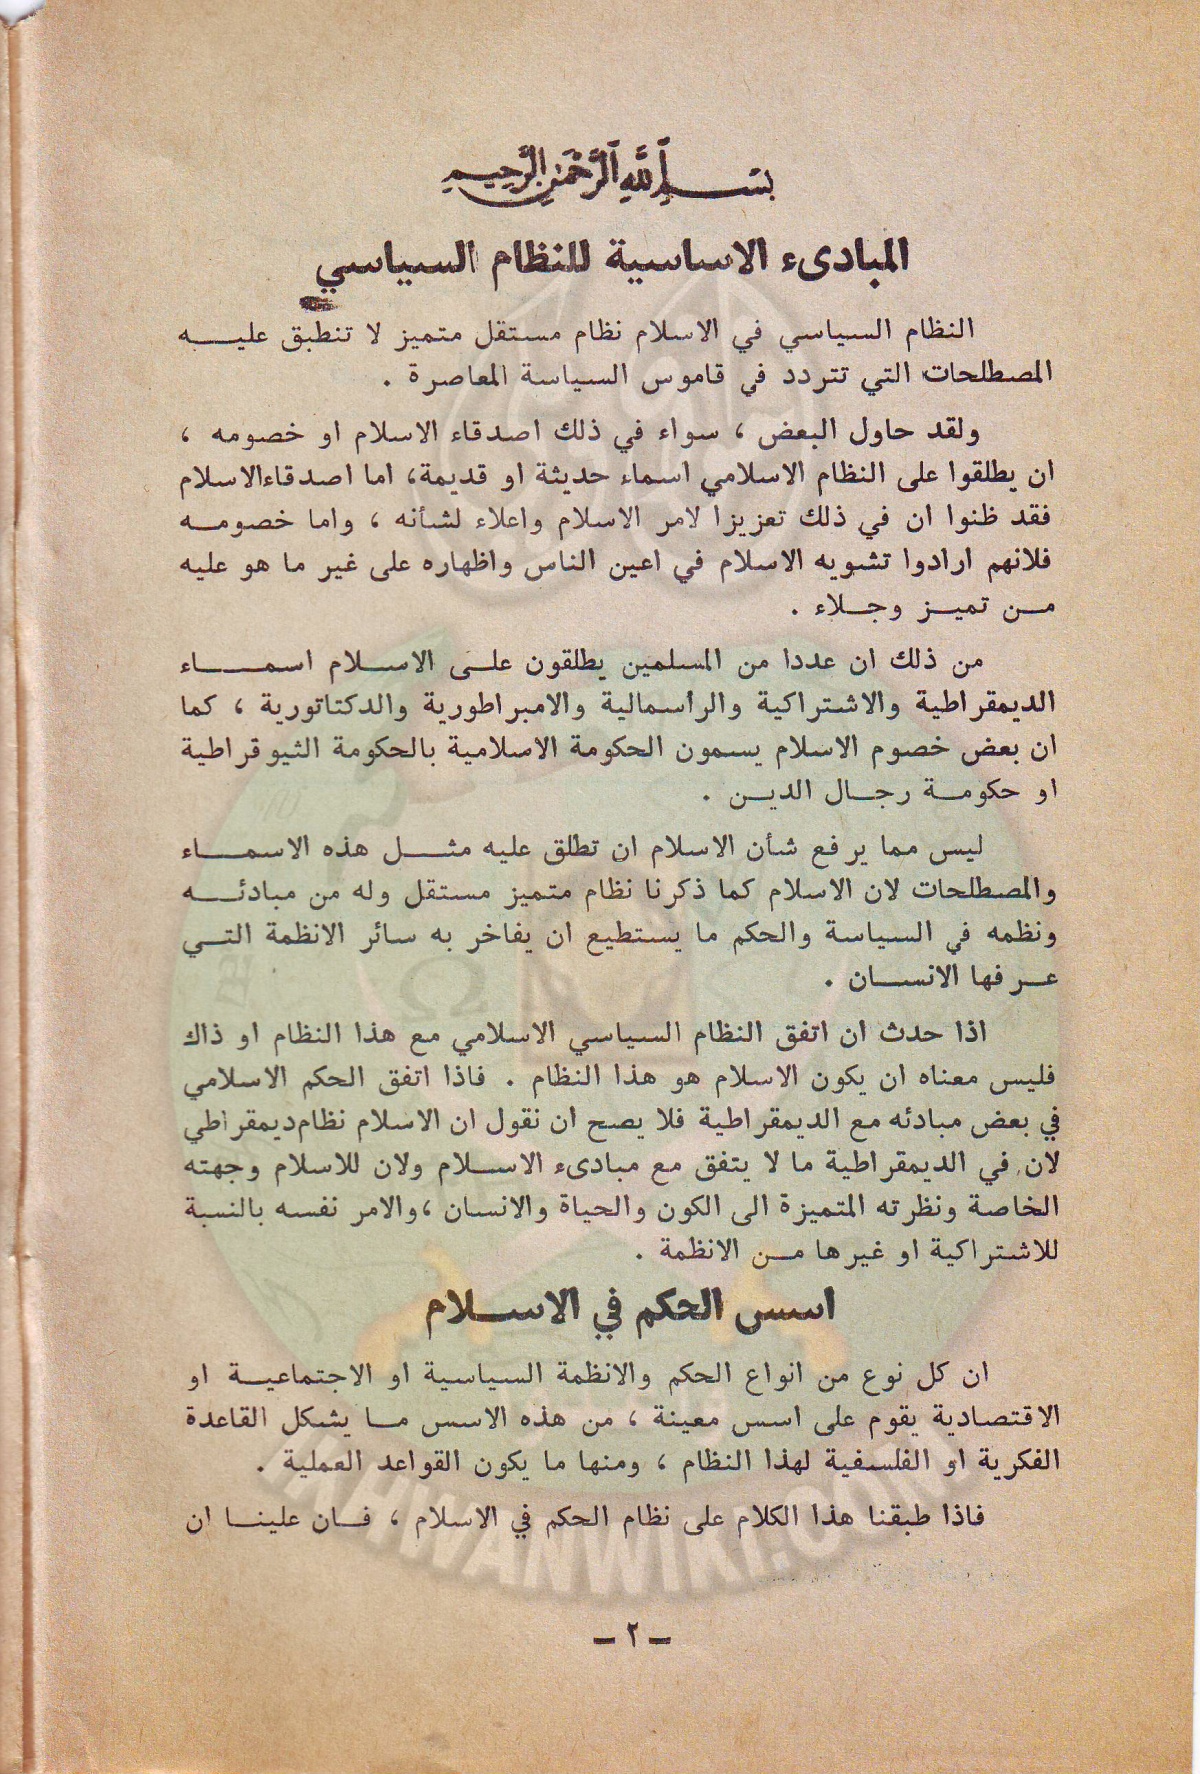 بسم الله الرحمن الرحيم
المبادىء الاساسية للنظام السياسي
النظام السياسي في الاسلام نظام مستقل متميز لا تنطبق عليه
المصطلحات التي تتردد في قاموس السياسة المعاصرة .
ولقد حاول البعض ، سواء في ذلك اصدقاء الاسلام او خصومه ،
ان يطلقوا على النظام الاسلامي اسماء حديثة او قديمة، اما اصدقاءالاسلام
فقد ظنوا ان في ذلك تعزيزا لامر الاسلام واعلاء لشأنه ، واما خصومه
فلانهم ارادوا تشويه الاسلام في اعين الناس واظهاره على غير ما هو عليه
من تميز وجلاء .
من ذلك ان عددا من المسلمين يطلقون على الاسلام اسماء
الديمقراطية والاشتراكية والرأسمالية والامبراطورية والدكتاتورية ، كما
ان بعض خصوم الاسلام يسمون الحكومة الاسلامية بالحكومة الثيوقراطية
او حكومة رجال الدين .
ليس مما يرفع شأن الاسلام ان تطلق عليه مثل هذه الاسماء
والمصطلحات لان الاسلام كما ذكرنا نظام متميز مستقل وله من مبادئه
ونظمه في السياسة والحكم ما يستطيع ان يفاخر به سائر الانظمة التي
عرفها الانسان .
اذا حدث ان اتفق النظام السياسي الاسلامي مع هذا النظام او ذاك
فليس معناه ان يكون الاسلام هو هذا النظام . فاذا اتفق الحكم الاسلامي
في بعض مبادئه مع الديمقراطية فلا يصح ان نقول ان الاسلام نظام‌ديمقراطي
لان في الديمقراطية ما لا يتفق مع مبادىء الاسلام ولان للاسلام وجهته
الخاصة ونظرته المتميزة الى الكون والحياة والانسان ،والامر نفسه بالنسبة
للاشتراكية او غيرها من الانظمة .
اسس الحكم في الاسلام
ان كل نوع من انواع الحكم والانظمة السياسية او الاجتماعية او
الاقتصادية يقوم على اسس معينة ، من هذه الاسس ما يشكل القاعدة
الفكرية او الفلسفية لهذا النظام ، ومنها ما يكون القواعد العملية .
فاذا طبقنا هذا الكلام على نظام الحكم في الاسلام ، فان علينا ان
IKHWANWIKI.COM
– ٢ –